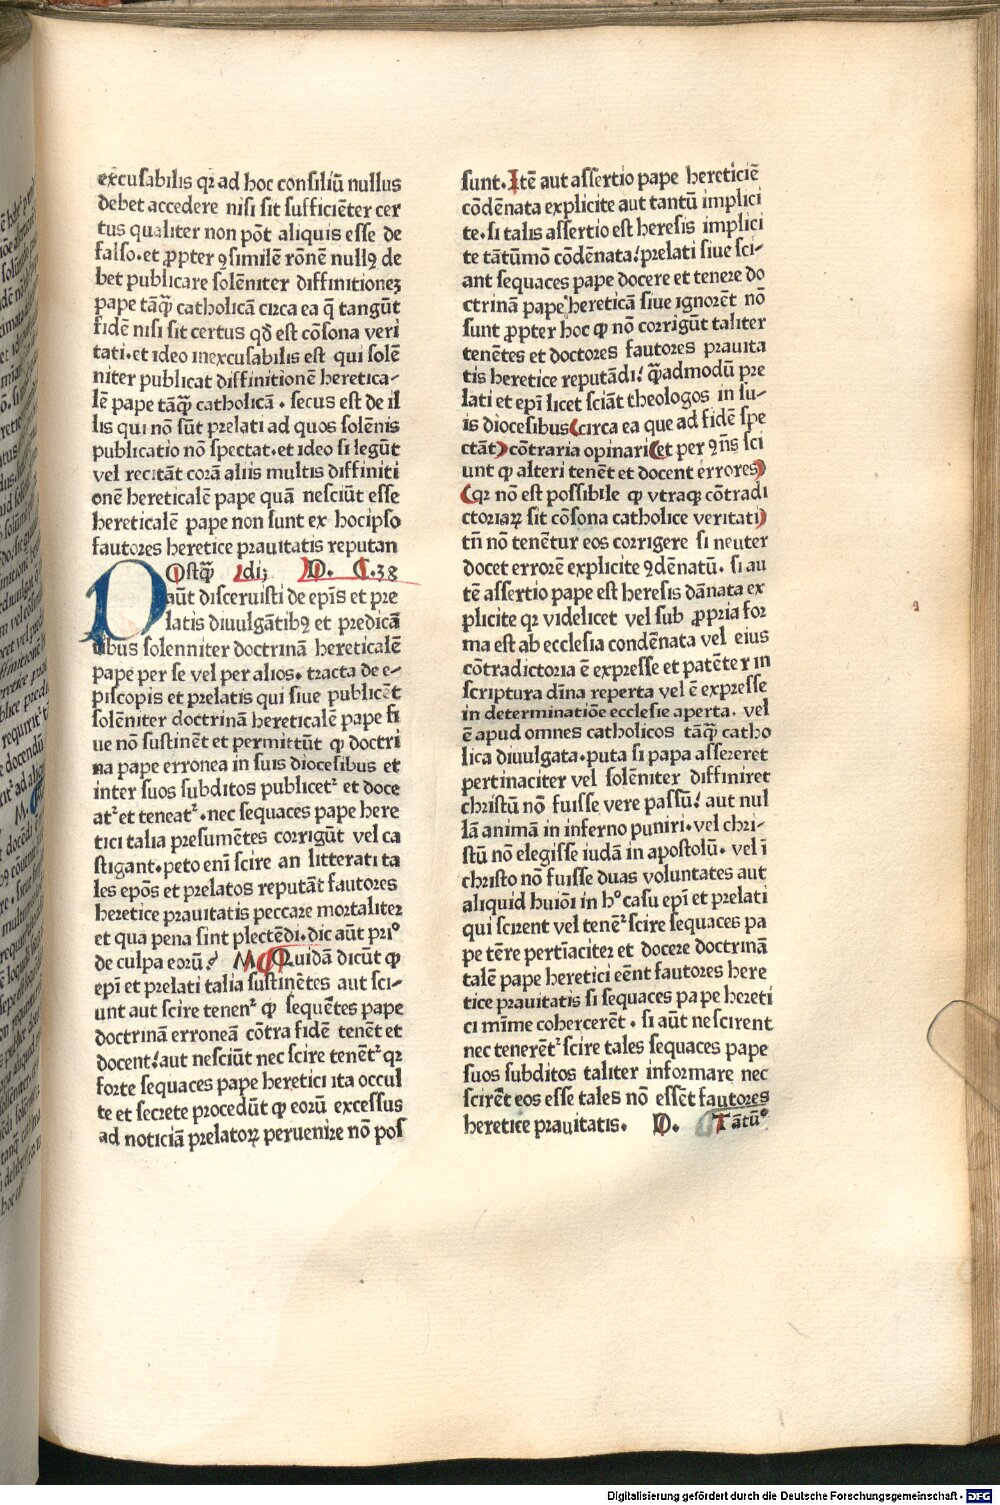 excusabilis qꝛ ad hoc consiliū nullus
debet accedere nisi sit sufficiēter cer
tus qualiter non pōt aliquis esse de
falso.et ꝓpter ꝯsimilē rōnē nullꝯ de
bet publicare solēniter diffinitionez
pape tāꝙ̄ catholicā circa ea q̄ tangūt
fidē nisi sit certus qđ est cōsona veri
tati.et ideo inexcusabilis est qui solē
niter publicat diffinitionē heretica-
lē pape tāꝙ̄ catholicā . secus est de il
lis qui nō sūt prelati ad quos solēnis
publicatio nō spectat.et ideo si legūt
vel recitāt corā aliis multis diffiniti
onē hereticalē pape quā nesciūt esse
hereticalē pape non sunt ex hocipso
fautores heretice prauitatis reputan
POstꝙ̄ di; D. C.38
aūt disceruisti de epīs et pre
latis diuulgātibꝯ et predicā
tibus solenniter doctrinā hereticalē
pape per se vel per alios. tracta de e-
piscopis et prelatis qui siue publicēt
solēniter doctrinā hereticalē pape si
ue nō sustinēt et permittūt ꝙ doctri
na pape erronea in suis diocesibus et
inter suos subditos publicetᷣ et doce
atᷣ et teneatᷣ.nec sequaces pape here
tici talia presumētes corrigūt vel ca
stigant.peto enī scire an litterati ta
les epōs et prelatos reputāt fautores
heretice prauitatis peccare mortaliter
et qua pena sint plectēdi.dic aūt priº
de culpa eorū? M. Quidā dicūt ꝙ
epī et prelati talia sustinētes aut sci-
unt aut scire tenenᷣ ꝙ sequētes pape
doctrinā erroneā cōtra fidē tenēt et
docent:aut nesciūt nec scire tenētᷣ qꝛ
forte sequaces pape heretici ita occul
te et secrete procedūt ꝙ eorū excessus
ad noticiā prelatoꝝ peruenire nō pos
sunt.Itē aut assertio pape hereticiē
cōdēnata explicite aut tantū implici
te.si talis assertio est heresis implici
te tātūmō cōdēnata:prelati siue sci-
ant sequaces pape docere et tenere do
ctrinā pape hereticā siue ignorēt nō
sunt ꝓpter hoc ꝙ nō corrigūt taliter
tenētes et doctores fautores prauita
tis heretice reputādi: ꝙ̄admodū pre
lati et epī licet sciāt theologos in su-
is diocesibus(circa ea que ad fidē spe
ctāt)cōtraria opinari(et per ꝯn̄s sci
unt ꝙ alteri tenēt et docent errores)
(qꝛ nō est possibile ꝙ vtraqꝫ cōtradi
ctoriaꝝ sit cōsona catholice veritati)
tn̄ nō tenētur eos corrigere si neuter
docet errorē explicite ꝯdēnatū. si au
tē assertio pape est heresis dānata ex
plicite qꝛ videlicet vel sub ꝓpria for
ma est ab ecclesia condēnata vel eius
cōtradictoria ē expresse et patēter in
scriptura dīna reperta vel ē expresse
in determinatiōe ecclesie aperta. vel
ē apud omnes catholicos tāꝙ̄ catho
lica diuulgata.puta si papa assereret
pertinaciter vel solēniter diffiniret
christū nō fuisse vere passū: aut nul
lā animā in inferno puniri.vel chri-
stū nō elegisse iudā in apostolū. vel ī
christo nō fuisse duas voluntates aut
aliquid huiōi in hº casu epī et prelati
qui scirent vel tenēᷣ scire sequaces pa
pe tēre pertīaciter et docere doctrinā
talē pape heretici eēnt fautores here
tice prauitatis si sequaces pape hereti
ci mīme cohercerēt . si aūt nescirent
nec tenerētᷣ scire tales sequaces pape
suos subditos taliter informare nec
scirēt eos esse tales nō essēt fautores
heretice prauitatis. D. Tātūº
Digitalisierung gefördert durch die Deutsche Forschungsgemeinschaft - DFG